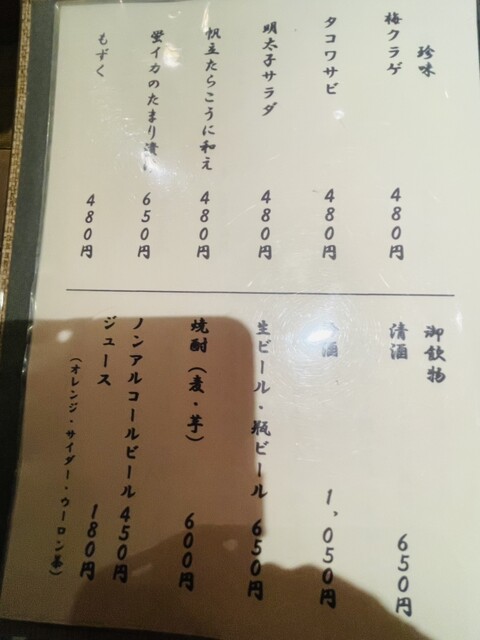 珍味
梅クラゲ 480円
タコワサビ 480円
明太子サラダ 480円
帆立たらこうに和え 480円
蛍イカのたまり漬け 650円
もずく 480円
御飲物
清酒 650円
酒 1,050円
生ビール・瓶ビール 650円
焼酎(麦・芋) 600円
ノンアルコールビール 450円
ジュース 180円
(オレンジ・サイダー・ウーロン茶)